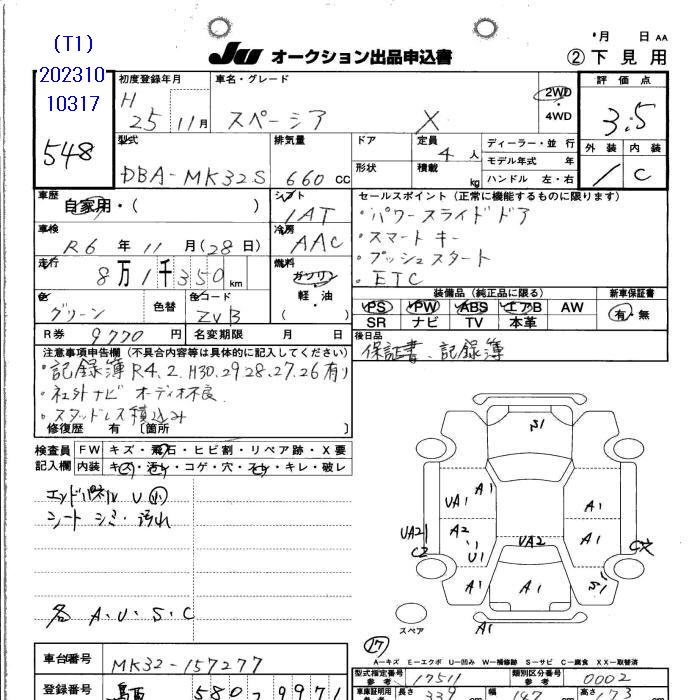 (T1)
202310
10317
548
JU オークション出品申込書
月 日 AA
② 下見用
初度登録年月
H
25 11月
車名・グレード
スペーシア X
2WD
・
4WD
評価点
3.5
外装 内装
/ C
型式
DBA-MK32S
排気量
660 cc
ドア
形状
定員
4 人
積載
kg
ディーラー・並行
モデル年式 年
ハンドル 左・右
車歴
自家用・( )
シフト
IAT
車検
R6 年 11 月(28日)
冷房
AAC
走行
8万1千350 km
燃料
ガソリン
軽・油
( )
色
グリーン
色替
色コード
ZVB
R券 9770 円
名変期限 月 日
セールスポイント(正常に機能するものに限ります)
・パワースライドドア
・スマートキー
・プッシュスタート
・ETC
装備品(純正品に限る)
新車保証書
PS PW ABS エアB AW
SR ナビ TV 本革
有・無
後日品
保証書、記録簿
注意事項申告欄(不具合内容等は具体的に記入してください)
・記録簿R4.2.H30.29.28.27.26有り
・社外ナビ オーディオ不良
・スタッドレス積込み
修復歴 有 〔箇所 〕
検査員
記入欄
FW キズ・飛石・ヒビ割・リペア跡・X要
内装 キズ・汚レ・コゲ・穴・スレ・キレ・破レ
エンドパネル U 小
シート シミ・汚れ
各 A・U・S・C
S1
UA1
A1
A2
U1
UA2
C2
A1
A1
UA2
A1
A1
S1
A1
スペア
17
A－キズ E－エクボ U－凹み W－補修跡 S－サビ C－腐食 XX－取替済
車台番号
MK32-157277
登録番号
580 9971
型式指定番号
参考
17511
類別区分番号
参考
0002
車庫証明用
参考
長さ
339
cm
幅
147
cm
高さ
173
cm